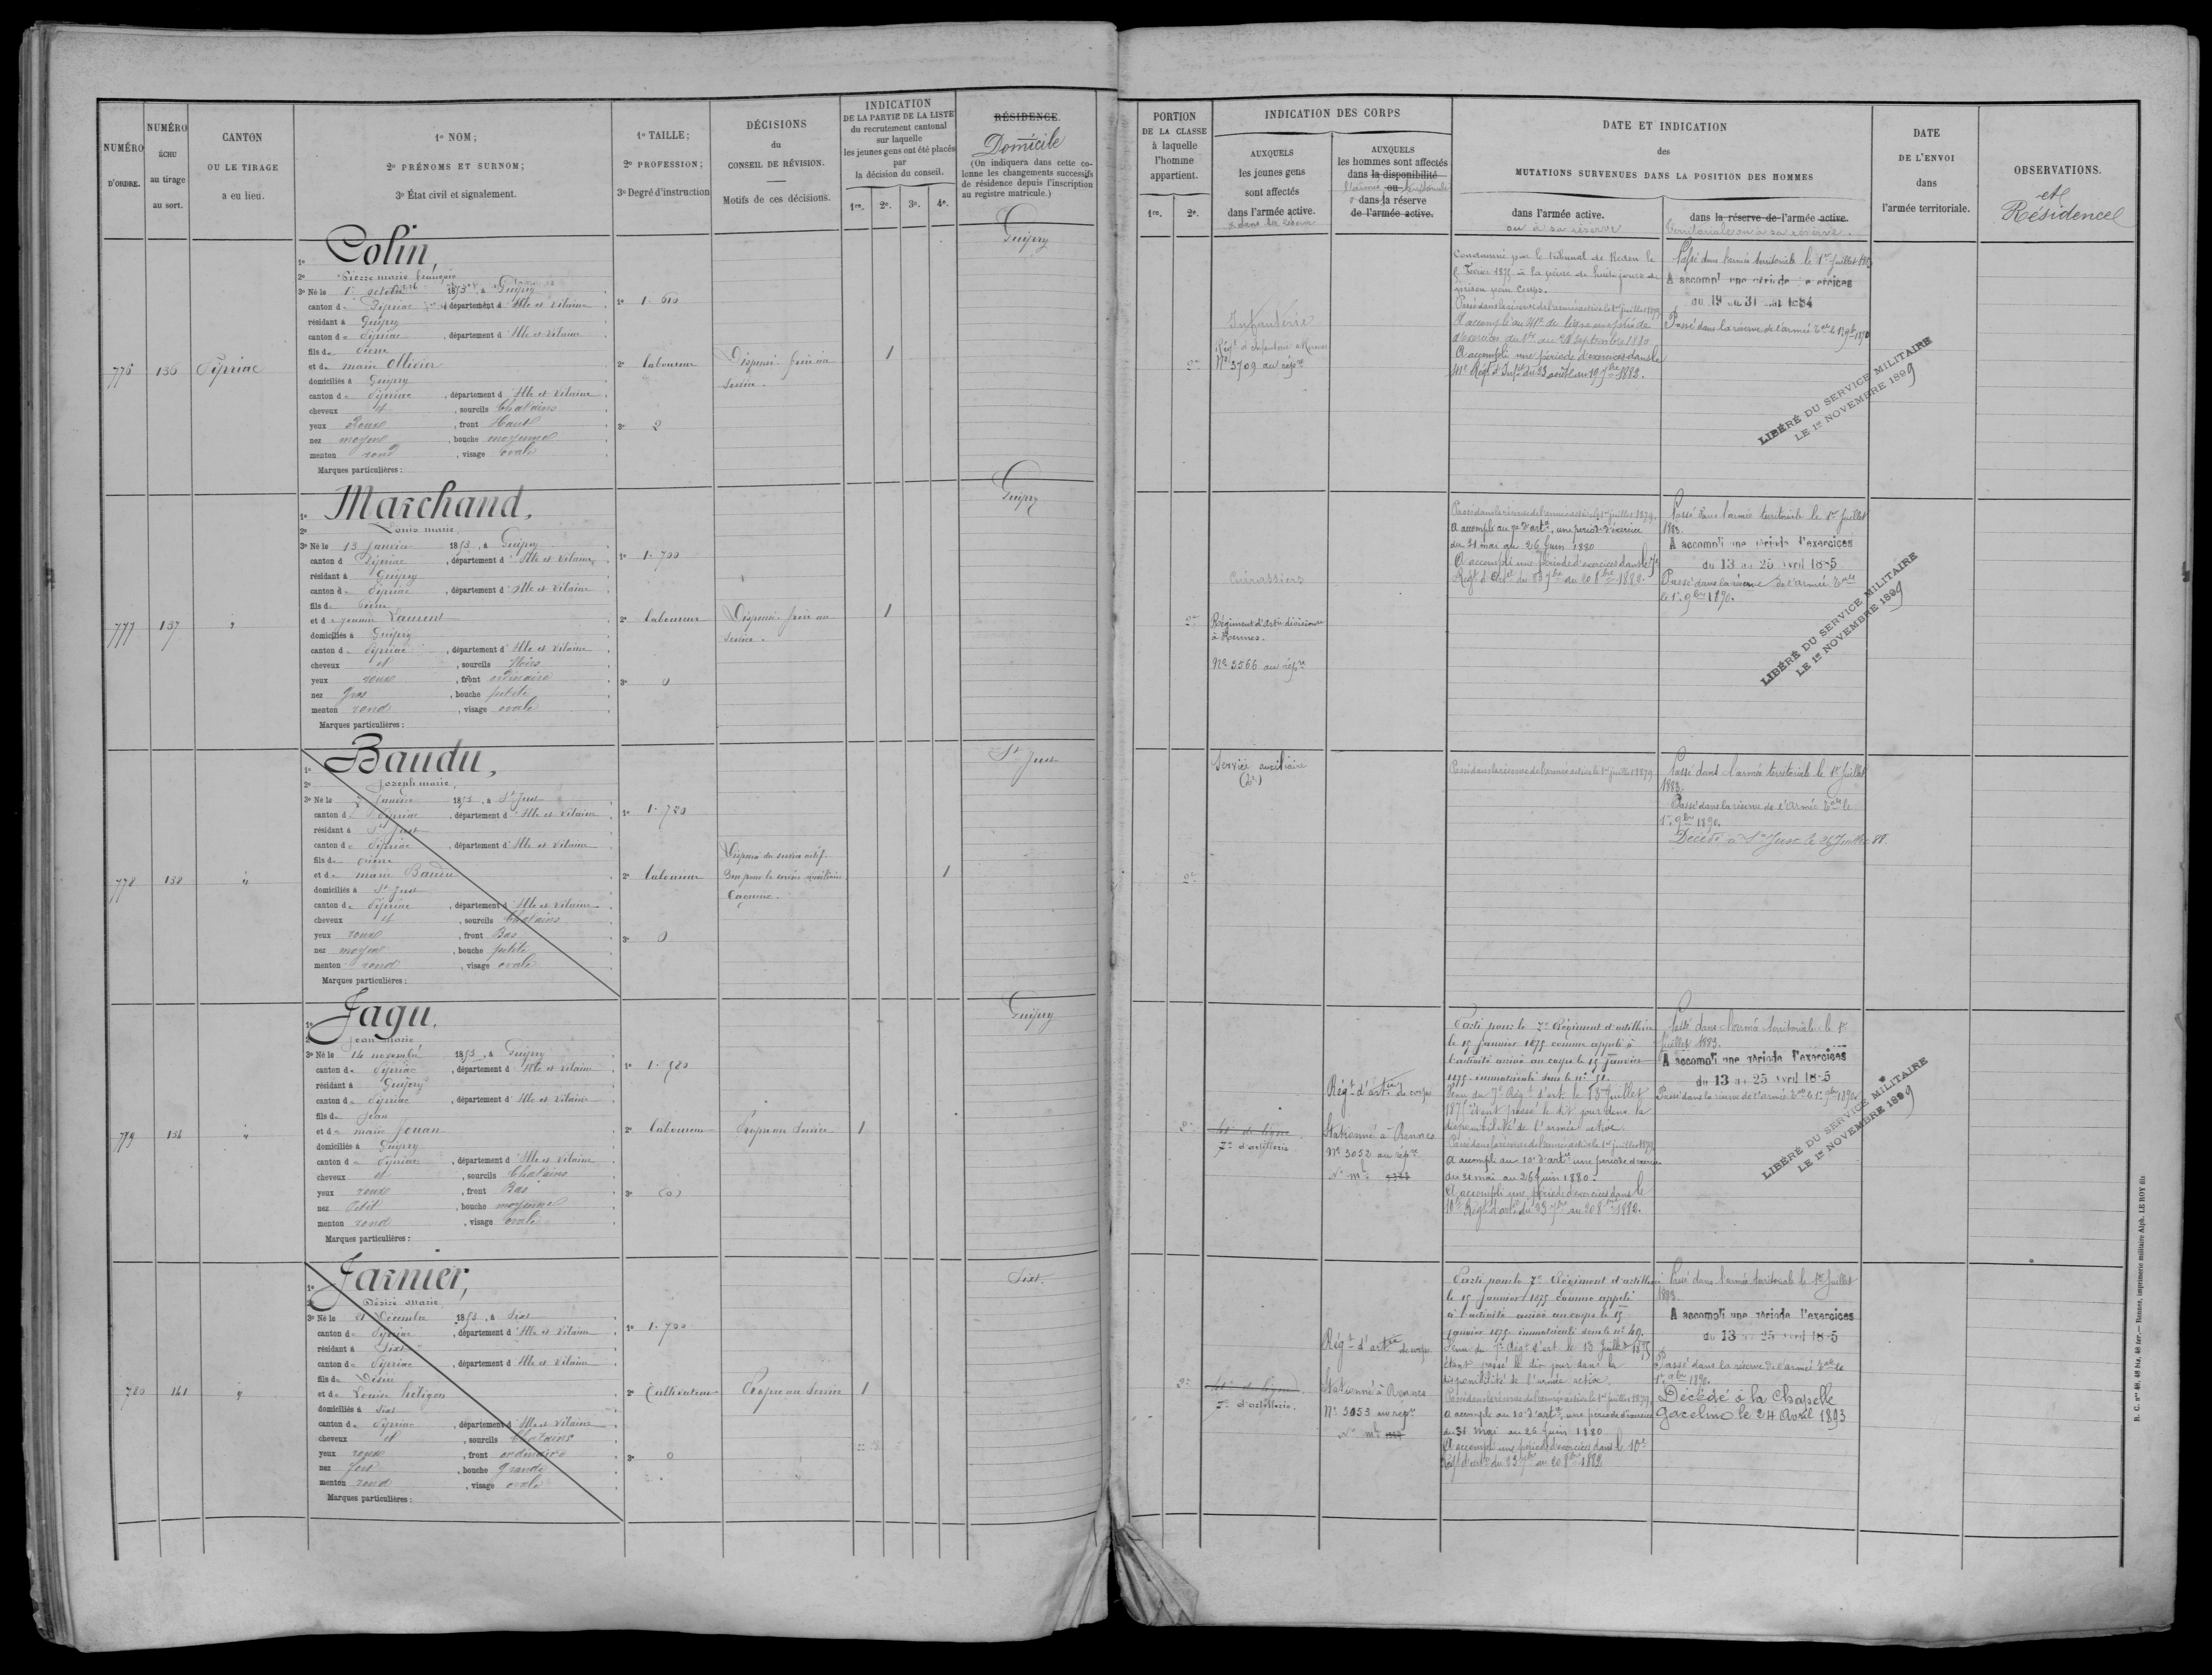 NUMÉRO
D'ORDRE.
NUMÉRO
ÉCHU
au tirage
au sort.
CANTON
OU LE TIRAGE
a eu lieu.
1º NOM;
2º PRÉNOMS ET SURNOM;
3º État civil et signalement.
1º TAILLE;
2º PROFESSION;
3º Degré d'instruction
DÉCISIONS
du
CONSEIL DE RÉVISION.
Motifs de ces décisions.
INDICATION
DE LA PARTIE DE LA LISTE
du recrutement cantonal
sur laquelle
les jeunes gens ont été placés
par
la décision du conseil.
1re. 2e. 3e. 4e.
RÉSIDENCE.
Domicile
(On indiquera dans cette co-
lonne les changements successifs
de résidence depuis l'inscription
au registre matricule.)
PORTION
DE LA CLASSE
à laquelle
l'homme
appartient.
1re. 2e.
INDICATION DES CORPS
AUXQUELS
les jeunes gens
sont affectés
dans l'armée active.
& dans la réserve
AUXQUELS
les hommes sont affectés
dans la disponibilité
l'armée ou territoriale
& dans la réserve
de l'armée active.
DATE ET INDICATION
des
MUTATIONS SURVENUES DANS LA POSITION DES HOMMES
dans l'armée active.
ou à sa réserve
dans la réserve de l'armée active.
territoriale ou à sa réserve.
DATE
DE L'ENVOI
dans
l'armée territoriale.
OBSERVATIONS.
et
Résidence
776
136
Pipriac
1º Colin,
2º Pierre marie françois
3º Né le 1er octobre 1853, à Guipry
canton de Pipriac, département d'Ille et Vilaine
résidant à Guipry
canton de Pipriac, département d'Ille et Vilaine
fils de Pierre
et de marie Ollivier
domiciliés à Guipry
canton de Pipriac, département d'Ille et Vilaine
cheveux et, sourcils Chatains
yeux Roux, front Haut
nez moyen, bouche moyenne
menton rond, visage ovale
Marques particulières :
1º 1.610
2º laboureur
3º 2
Dispensé frère au
service.
1
Guipry
2e
Infanterie
Régt d'Infanterie à Rennes
Nº 3709 au répre
Condamné par le tribunal de Redon le
Février 1875 à la peine de huit jours de
prison pour Coups.
Passé dans la réserve de l'armée active le 1er juillet 1879
A accompli au 41e de ligne une période
d'exercices du 1er au 28 septembre 1880
A accompli une période d'exercices dans le
41e Régt d'Infie du 23 août au 19 7bre 1882.
Passé dans l'armée territoriale le 1er Juillet 1883
A accompli une période d'exercices
du 19 au 31 mai 1884
Passé dans la réserve de l'armée Tale le 1er 9bre 1890
LIBÉRÉ DU SERVICE MILITAIRE
LE 1er NOVEMBRE 1899
777
137
"
1º Marchand,
2º Louis marie
3º Né le 13 Janvier 1853, à Guipry
canton d Pipriac, département d'Ille et Vilaine
résidant à Guipry
canton de Pipriac, département d'Ille et Vilaine
fils de Pierre
et de Jeanne Laurent
domiciliés à Guipry
canton de Pipriac, département d'Ille et Vilaine
cheveux et, sourcils Noirs
yeux roux, front ordinaire
nez Gros, bouche petite
menton rond, visage ovale
Marques particulières :
1º 1.700
2º laboureur
3º 0
Dispensé frère au
service.
1
Guipry
2e
Cuirassiers
Régiment d'artie divisionre
à Rennes.
Nº 3566 au répre
Passé dans la réserve de l'armée active le 1er juillet 1879.
A accompli au 7e d'artie, une période d'exercice
du 31 mai au 26 Juin 1880
A accompli une période d'exercices dans le 7e
Régt d'Artie du 23 7bre au 20 8bre 1882.
Passé dans l'armée territoriale le 1er Juillet
1883.
A accompli une période d'exercices
du 13 au 25 avril 1885
Passé dans la réserve de l'armée Tale
le 1er 9bre 1890.
LIBÉRÉ DU SERVICE MILITAIRE
LE 1er NOVEMBRE 1899
778
138
"
1º Baudu,
2º Joseph marie,
3º Né le 7 Janvier 1853, à St Just
canton d Pipriac, département d'Ille et Vilaine
résidant à St Just
canton de Pipriac, département d'Ille et Vilaine
fils de Pierre
et de marie Baudu
domiciliés à St Just
canton de Pipriac, département d'Ille et Vilaine
cheveux et, sourcils Chatains
yeux roux, front Bas
nez moyen, bouche petite
menton rond, visage ovale
Marques particulières :
1º 1.720
2º laboureur
3º 0
Dispensé du service actif.
Bon pour le service auxiliaire
1
St Just
2e
Service auxiliaire
Passé dans la réserve de l'armée active le 1er juillet 1879
Passé dans l'armée territoriale le 1er Juillet
1883.
Passé dans la réserve de l'armée Tale le
1er 9bre 1890.
Décédé à St Just le 26 Juillet
779
1º Jagu,
2º Jean marie
3º Né le 14 novembre 1853, à Guipry
canton de Pipriac, département d'Ille et Vilaine
résidant à Guipry
canton de Pipriac, département d'Ille et Vilaine
fils de Jean
et de marie Jouan
domiciliés à Guipry
canton d Pipriac, département d'Ille et Vilaine
cheveux et, sourcils Chatains
yeux roux, front Bas
nez Petit, bouche moyenne
menton rond, visage ovale
Marques particulières :
1º 1.580
2º laboureur
3º (0)
Propre au Service
1
Guipry
2e
41e de ligne
7e d'artillerie
Régt d'artie de corps
Stationné à Rennes
Nº 3052 au répre
Nº mle
Parti pour le 7e Régiment d'artillerie
le 15 Janvier 1875 comme appelé à
l'activité arrivé au corps le 15 Janvier
1875 immatriculé sous le nº 51.
Venu du 7e Régt d'art. le 13 Juillet
1875 étant passé le dit jour dans la
disponibilité de l'armée active.
Passé dans la réserve de l'armée active le 1er juillet 1879.
A accompli au 10e d'artie une période d'exercices
du 31 mai au 26 Juin 1880.
A accompli une période d'exercices dans le
10e Régt d'artie du 23 7bre au 20 8bre 1882.
Passé dans l'armée territoriale le 1er
Juillet 1883.
A accompli une période d'exercices
du 13 au 25 avril 1885
Passé dans la réserve de l'armée Tale le 1er 9bre 1890
LIBÉRÉ DU SERVICE MILITAIRE
LE 1er NOVEMBRE 1899
780
141
"
1º Jarnier,
2º Désiré Marie
3º Né le 21 Décembre 1853, à Sixt
canton d Pipriac, département d'Ille et Vilaine
résidant à Sixt
canton de Pipriac, département d'Ille et Vilaine
fils de Désiré
et de Louise
domiciliés à Sixt
canton de Pipriac, département d'Ille et Vilaine
cheveux et, sourcils Chatains
yeux roux, front ordinaire
nez fort, bouche Grande
menton rond, visage ovale
Marques particulières :
1º 1.700
2º Cultivateur
3º 0
Propre au Service
1
Sixt.
2e
41e de ligne
7e d'artillerie.
Régt d'artie de corps.
Stationné à Rennes
Nº 3053 au répre
Nº mle
Parti pour le 7e Régiment d'artillerie
le 15 Janvier 1875 comme appelé
à l'activité arrivé au corps le 15
janvier 1875 immatriculé sous le nº 49.
Venu du 7e Régt d'art. le 13 Juillet 1875
étant passé le dit jour dans la
disponibilité de l'armée active.
Passé dans la réserve de l'armée active le 1er juillet 1879.
A accompli au 10e d'artie, une période d'exercices
du 31 mai au 26 Juin 1880
A accompli une période d'exercices dans le 10e
Régt d'artie du 23 7bre au 20 8bre 1882
Passé dans l'armée territoriale le 1er Juillet
1883.
A accompli une période d'exercices
du 13 au 25 avril 1885
Passé dans la réserve de l'armée Tale le
1er 9bre 1890.
Décédé à la Chapelle
Gaceline le 24 Avril 1893
R. C. nos 48, 48 bis, 48 ter.— Rennes, imprimerie militaire Alph. LE ROY fils